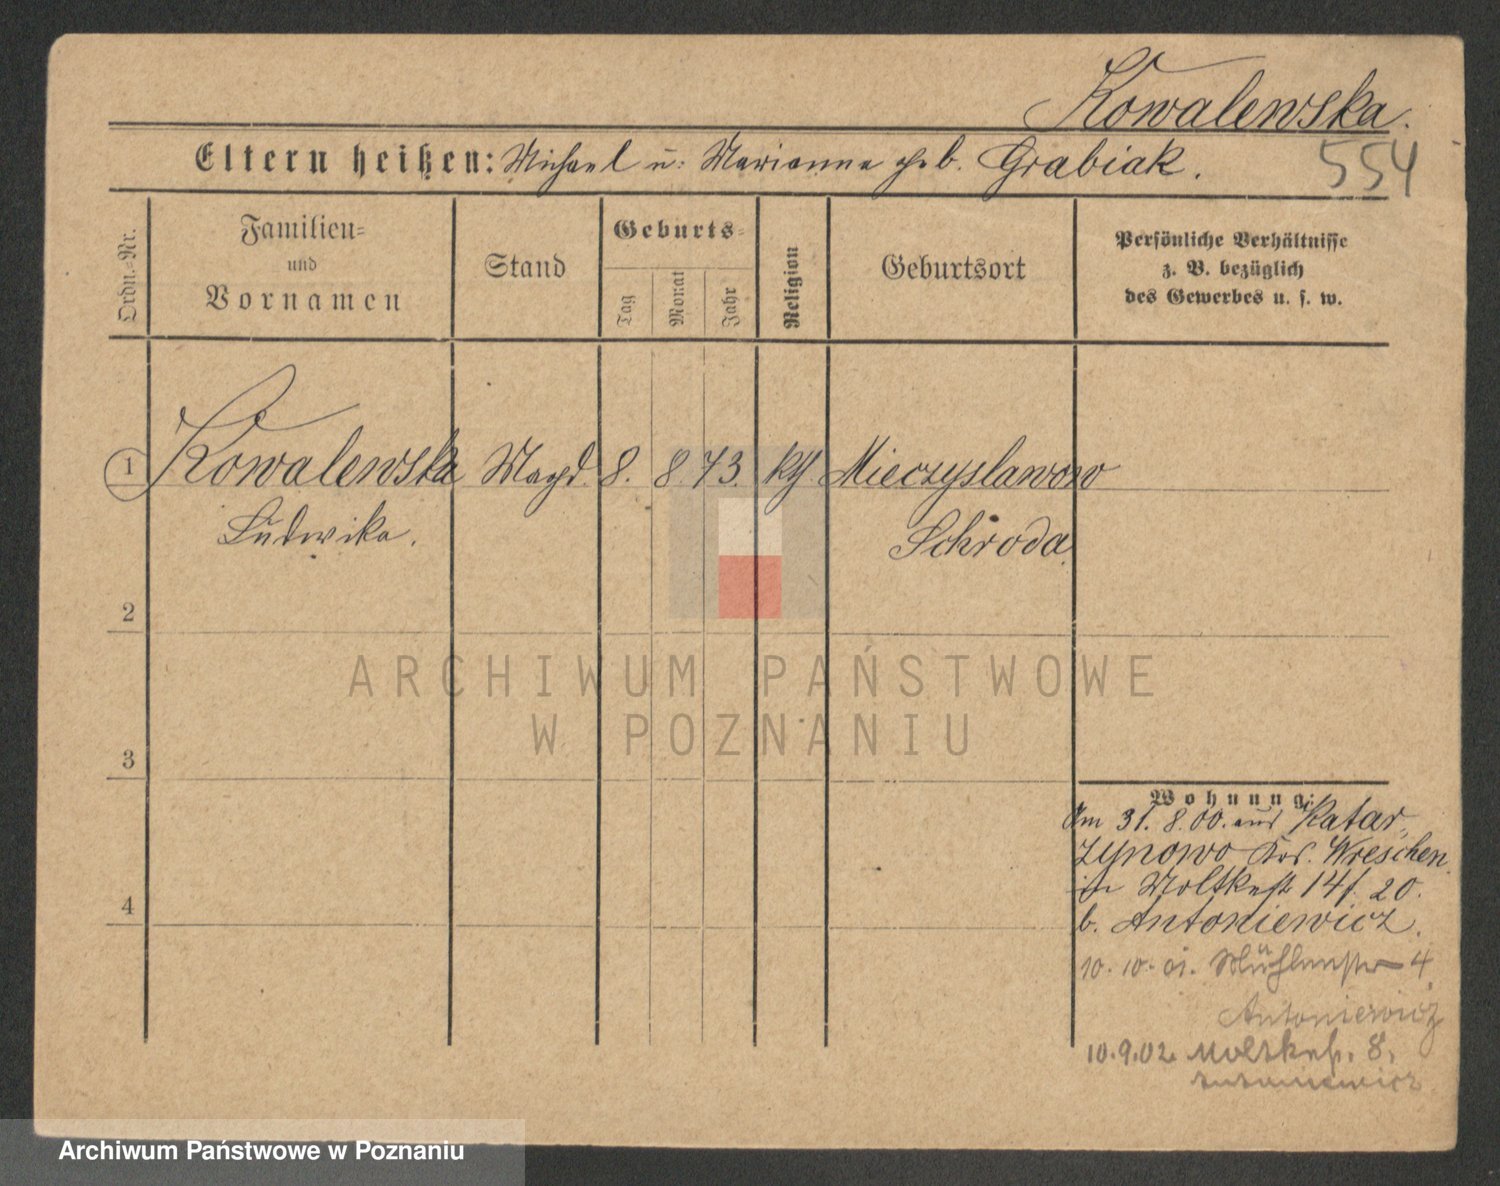 Kowalewska.
Eltern heißen: Michael u: Marianna geb. Grabiak.
554
Ordn.-Nr.
Familien-
und
Vornamen
Stand
Geburts-
Tag
Monat
Jahr
Religion
Geburtsort
Persönliche Verhältnisse
z. B. bezüglich
des Gewerbes u. s. w.
1 Kowalewska Magd. 8. 8. 73. kth. Mieczyslawowo
Ludwika. Schroda.
2
3
4
Wohnung:
Am 31. 8. 00. aus Katar-
zynowo Krs. Wreschen
in Moltkestr. 14/. 20.
b. Antoniewicz.
10. 10. 01. Mühlenstr 4
Antoniewicz
10.9.02. Moltkestr. 8.
Antoniewicz
ARCHIWUM PAŃSTWOWE
W POZNANIU
Archiwum Państwowe w Poznaniu